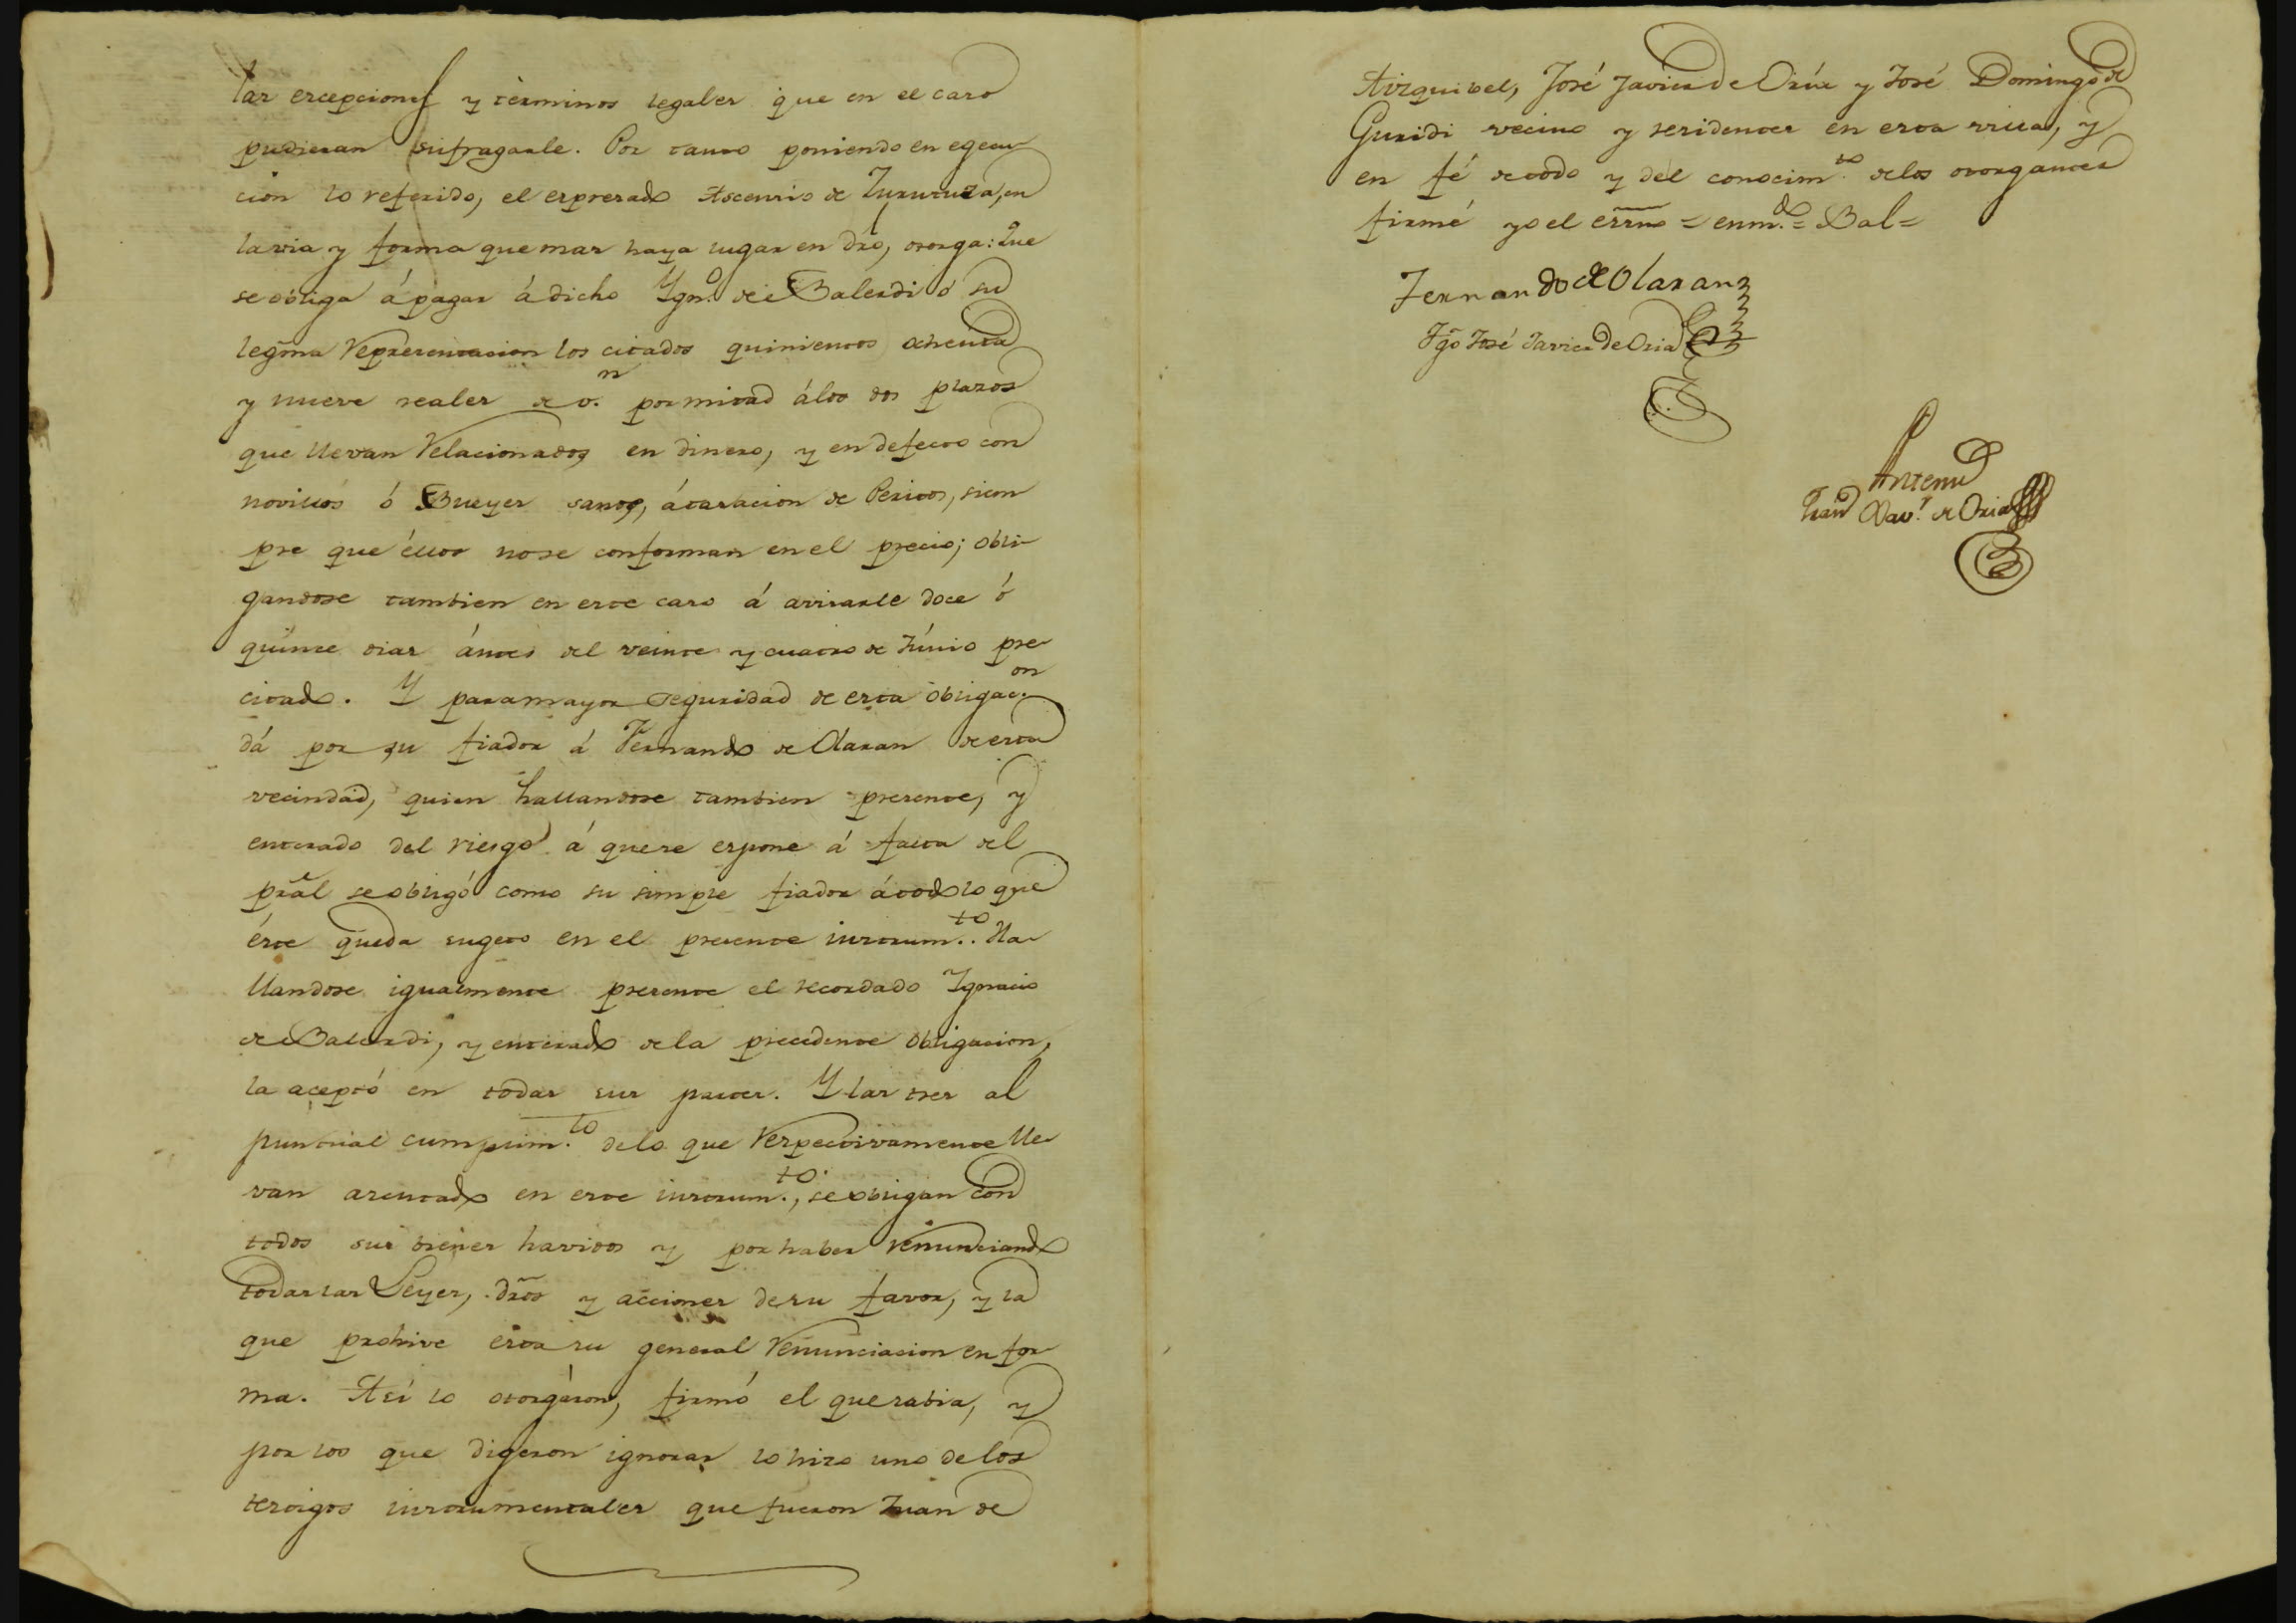 las excepciones y términos legales que en el caso
pudieran sufragarle. Por tanto poniendo en egecu-
cion lo referido, el expresado Ascensio de Zurutuza, en
la via y forma que mas haya lugar en dro, otorga: Que
se obliga á pagar á dicho Ygn.º de Balerdi ó su
legma representacion los citados quinientos ochenta
y nueve reales de v.n por mitad álos dos plazos
que llevan relacionados, en dinero, y en defecto con
novillos ó Bueyes sanos, átasacion de Peritos, siem
pre que éllos nose conforman en el precio; obli-
gandose tambien en este caso á avisarle doce ó
quince dias ántes del veinte y cuatro de Júnio pre-
citado. Y para mayor seguridad de esta obligac.on
dá por su fiador á Fernando de Olaran de esta
vecindad, quien hallandose tambien presente, y
enterado del riesgo á que se espone á falta del
pral se obligó como su simple fiador átodo lo que
éste queda sugeto en el presente instrum.to. Ha-
llandose igualmente presente el recordado Ygnacio
de Balerdi, y enterado dela precedente obligacion,
la aceptó en todas sus partes. Y las tres al
puntual cumplim.to delo que respectivamente lle-
van asentado en este instrum.to, se obligan con
todos sus bienes havidos y por haber renunciando
todas las Leyes, dros y acciones desu favor, y la
que prohive esta su general renunciacion en for-
ma. Así lo otorgáron, firmó el que sabia, y
por los que digeron ignorar lo hizo uno delos
testigos instrumentales que fueron Juan de
Aizquibel, José Javier de Oria y José Domingo de
Guridi vecino y residentes en esta villa, y
en fé detodo y del conocim.to delos otorgantes
firmé yo el errno = enm.do = Bal =
Fernando de Olaran
Tgo José Javier de Oria
Antemi
Juan Xav.r de Oria